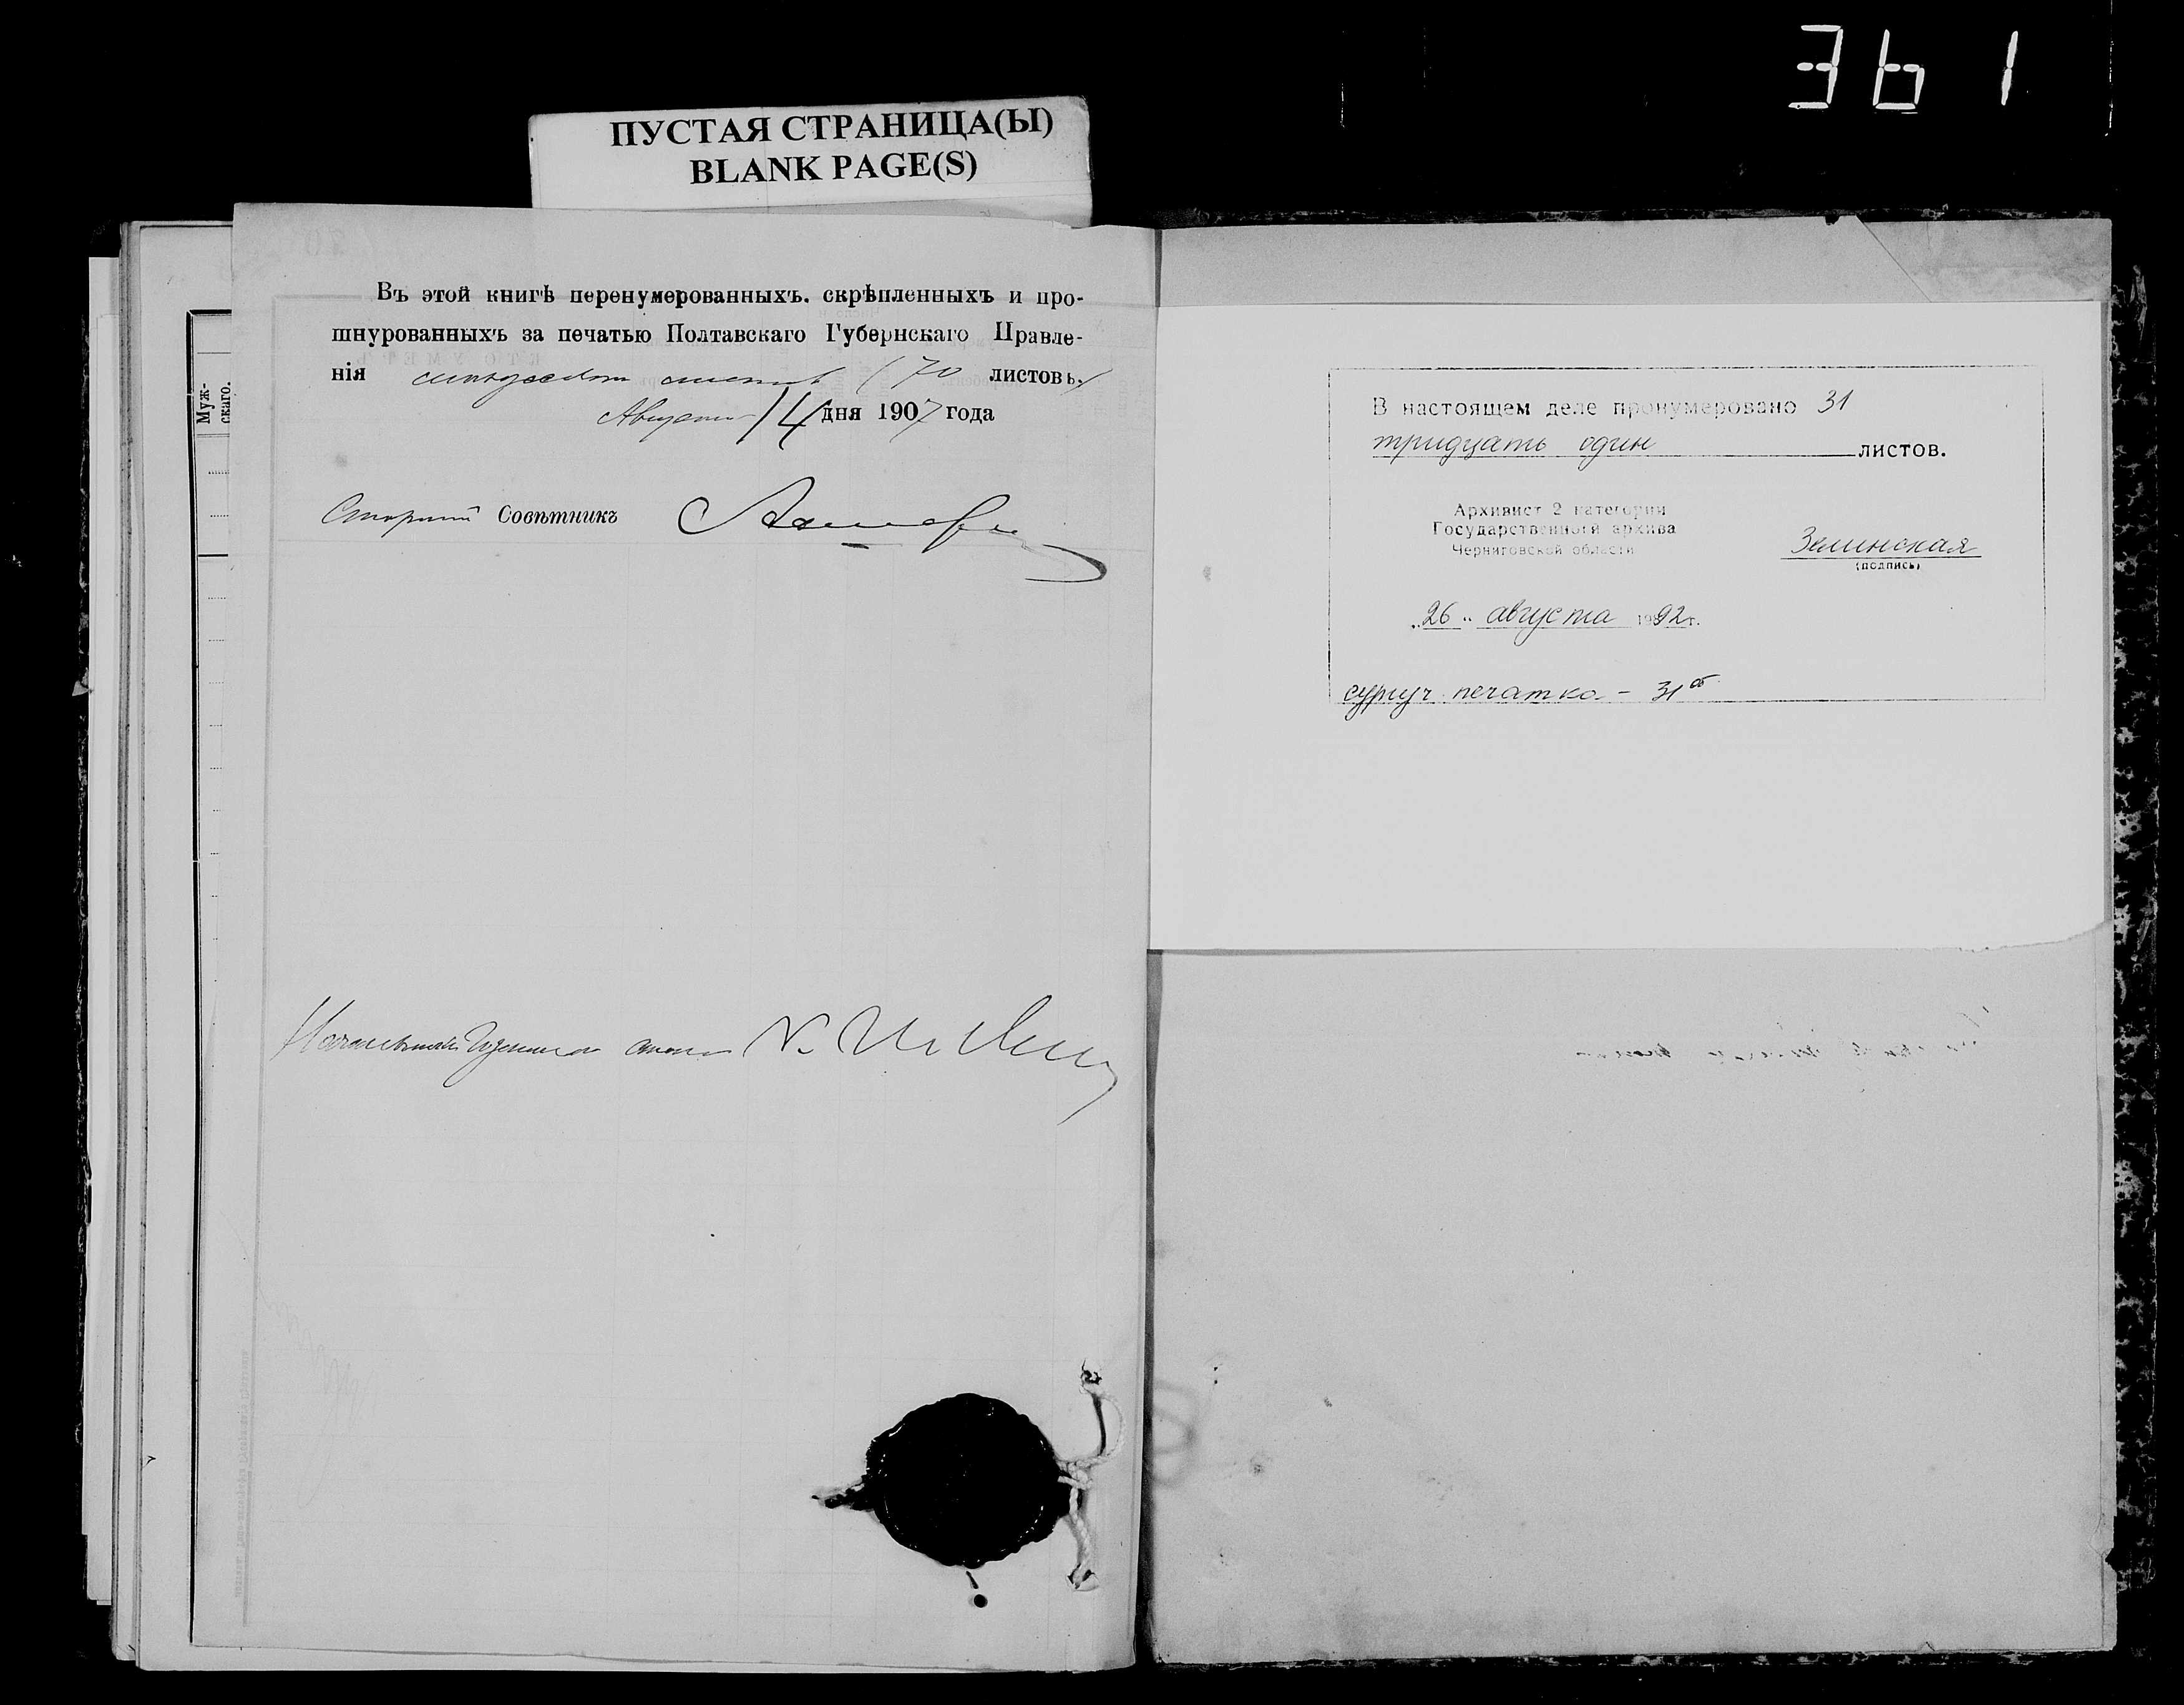 ПУСТАЯ СТРАНИЦА(Ы)
BLANK PAGE(S)
Муж-
скаго.
Въ этой книгѣ перенумерованныхъ, скрѣпленныхъ и про-
шнурованныхъ за печатью Полтавскаго Губернскаго Правле-
нія (70 листовъ.)
Августа 14 дня 1907 года
Старшій Совѣтникъ
Начальникъ
В настоящем деле пронумеровано 31
тридцать один листов.
Архивист 2 категории
Государственного архива
Черниговской области
Зелинская
(подпись)
"26" августа 1992 г.
сургуч. печатка - 31 об